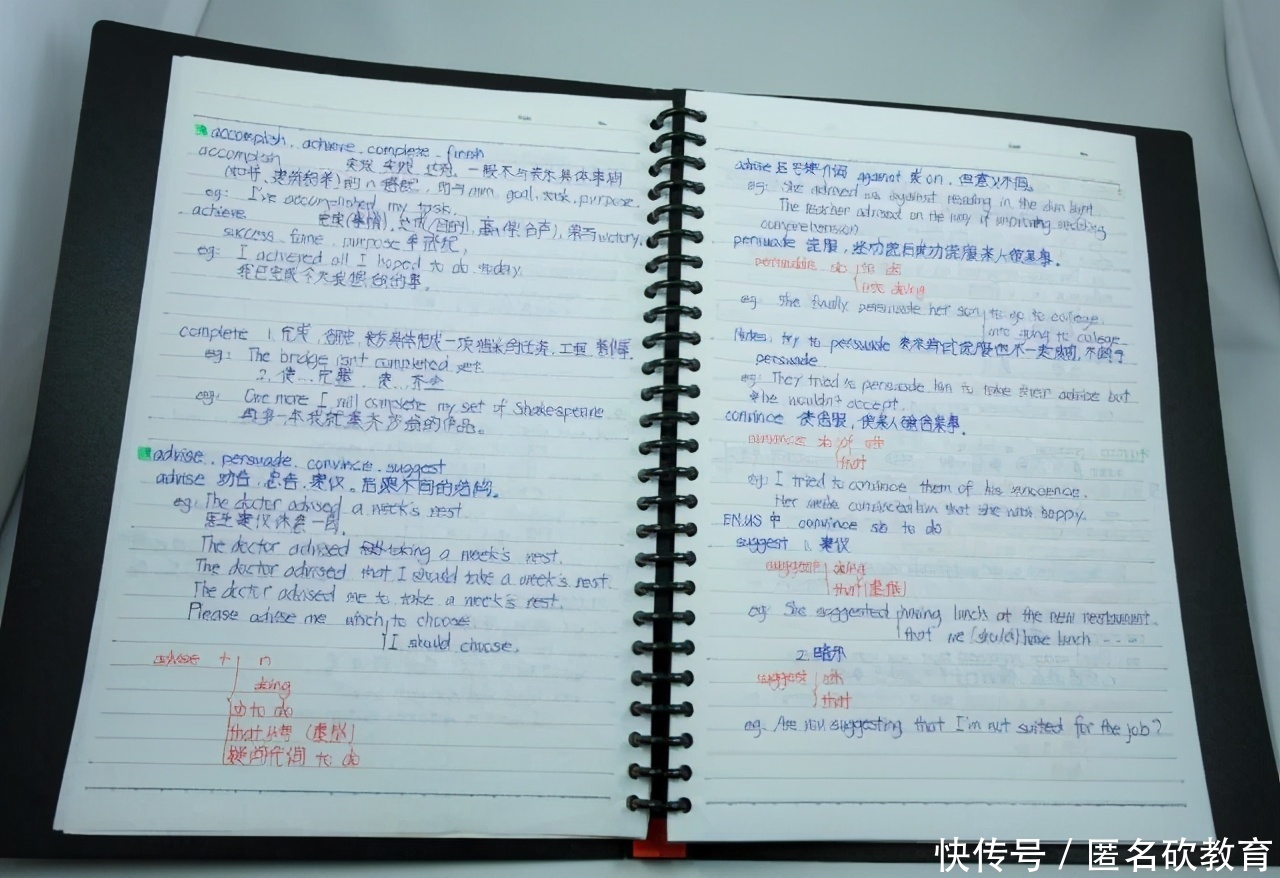 accomplish, achieve, complete, finish
accomplish 实现, 实践, 达到, 一般不与表示具体事物
的n 搭配, 可与aim, goal, task, purpose.
eg: I've accomplished my task.
achieve 完成(事情), 达到(目的), 赢得(声声), 常与victory,
success, fame, purpose 等搭配,
eg: I achieved all I hoped to do today.
我已完成今天我想做的事。
complete 1. 完成, 一项 的任务, 工程, 著作等.
eg: The bridge isn't completed yet.
2. 使…完整
eg: One more I will complete my set of Shakespeare
再多一本我就集齐 的作品。
advise, persuade, convince, suggest
advise 劝告, 忠告, 建议。后跟不同的结构。
eg: The doctor advised a week's rest.
医生建议休息一周。
The doctor advised taking a week's rest.
The doctor advised that I should take a week's rest.
The doctor advised me to take a week's rest.
Please advise me which to choose.
I should choose.
advise + n
doing
sb to do
that 从句 (虚拟)
疑问代词 to do
advise 后 接介词 against 或 on, 但意义不同。
eg: She advised us against reading in the dim light
The teacher advised on the way of improving
comprehension
persuade 说服, 成功说服某人做某事。
persuade sb to do
into doing
eg: She finally persuade her son to go to college.
into going to college
Notes: try to persuade 表示 说服 不一定成功, 不同于
persuade
eg: They tried to persuade him to take their advice but
he wouldn't accept.
convince 使信服, 使某人 某事.
convince sb of sth
that
eg: I tried to convince them of his innocence.
Her smile convinced him that she was happy.
EN.US 中 convince sb to do
suggest 1. 建议
suggest doing
that (虚拟)
eg: She suggested having lunch at the new restaurant.
that we (should) have lunch ----
2. 暗示
suggest sth
that
eg. Are you suggesting that I'm not suited for the job?
快传号 / 匿名砍教育